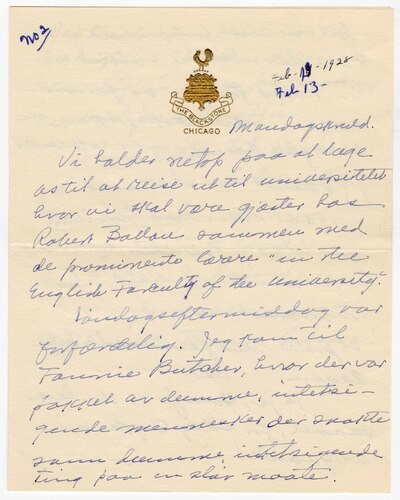 No 2
Feb. 13 - 1928
Feb 13 -
THE BLACKSTONE
CHICAGO
Mandagskveld.
Vi holder netop paa at lage
os til at reise ut til universitetet
hvor vi skal være gjæster hos
Robert Ballou sammen med
de prominente lærere "in the
English Faculty of the University".
Søndagseftermiddag var
forfærdelig. Jeg kom til
Fannie Butcher, hvor der var
pakket av dumme, intetsi-
gende mennesker der snakte
samme dumme, intetsigende
ting paa en slov maate.